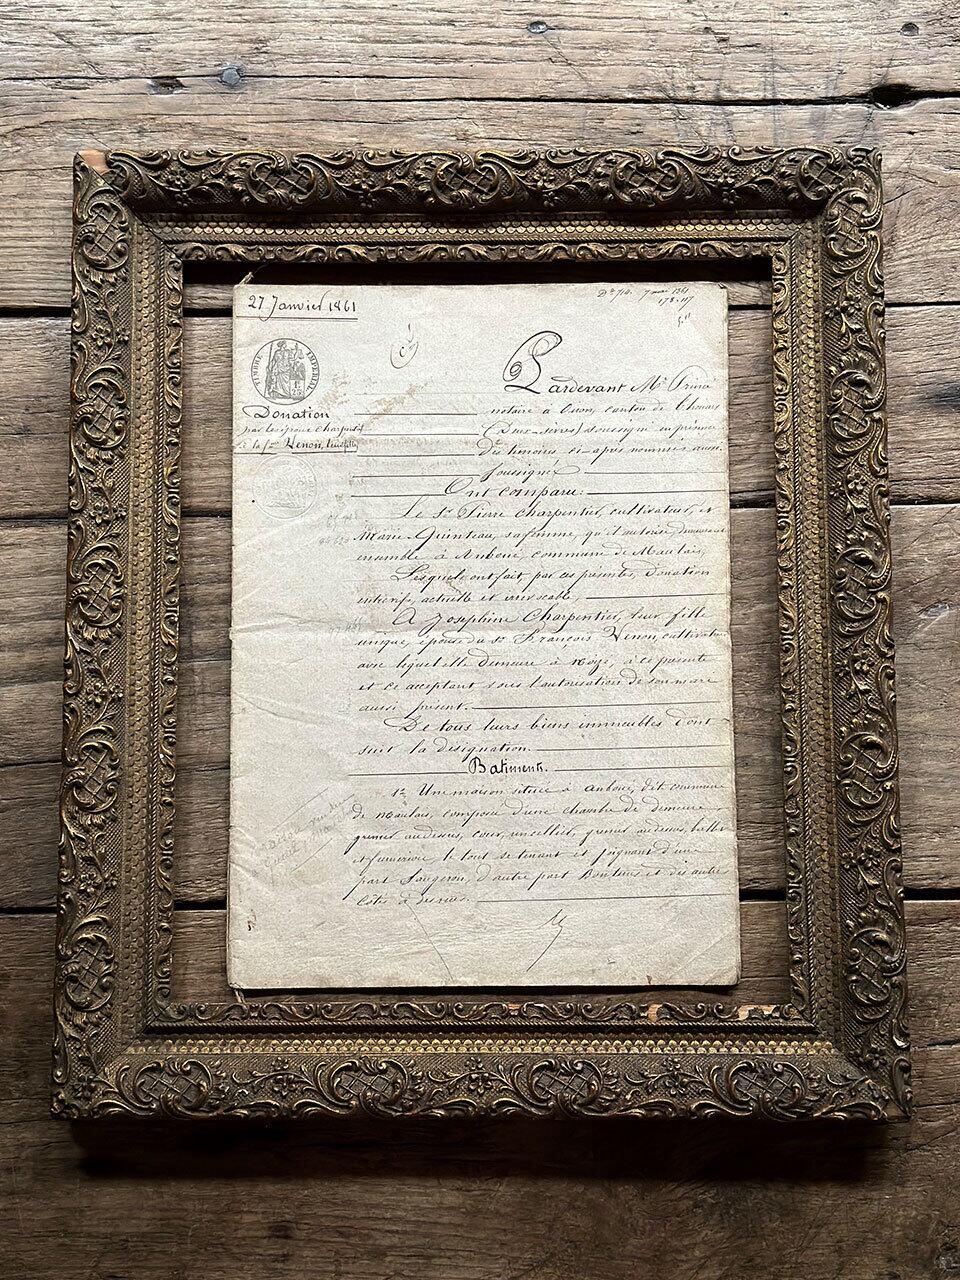 27 Janvier 1861
Dt 710. 7 mai 1861
178. 117
TIMBRE IMPERIAL
1F
25
Donation
par les époux Charpentier
à la fme Venon, leur fille
Pardevant Me
notaire à Oiron, canton de Thouars
(Deux-Sèvres) soussigné en présence
Des témoins ci-après nommés aussi
soussignés
Ont comparu:
Le Sr Pierre Charpentier, cultivateur, et
Marie Quinteau, sa femme, qu'il autorise, demeurant
ensemble à Anboué, commune de Maulais,
Lesquels ont fait par ces présentes, Donation
entrevifs, actuelle et irrévocable,
A Joséphine Charpentier, leur fille
unique, épouse du Sr François Venon, cultivateur
avec lequel elle demeure à Noizé, à ce présente
et ce acceptant sous l'autorisation de son mari
aussi présent.
De tous leurs biens immeubles dont
suit la désignation.
Batiments.
1° Une maison située à Anboué, dit commune
de Maulais, composée d'une chambre de demeure,
grenier audessus, cour, un cellier, grenier audessus, ballet
et fumerier le tout se tenant et joignant d'une
part Saugeron, d'autre part Bonteus et des autres
côtés à